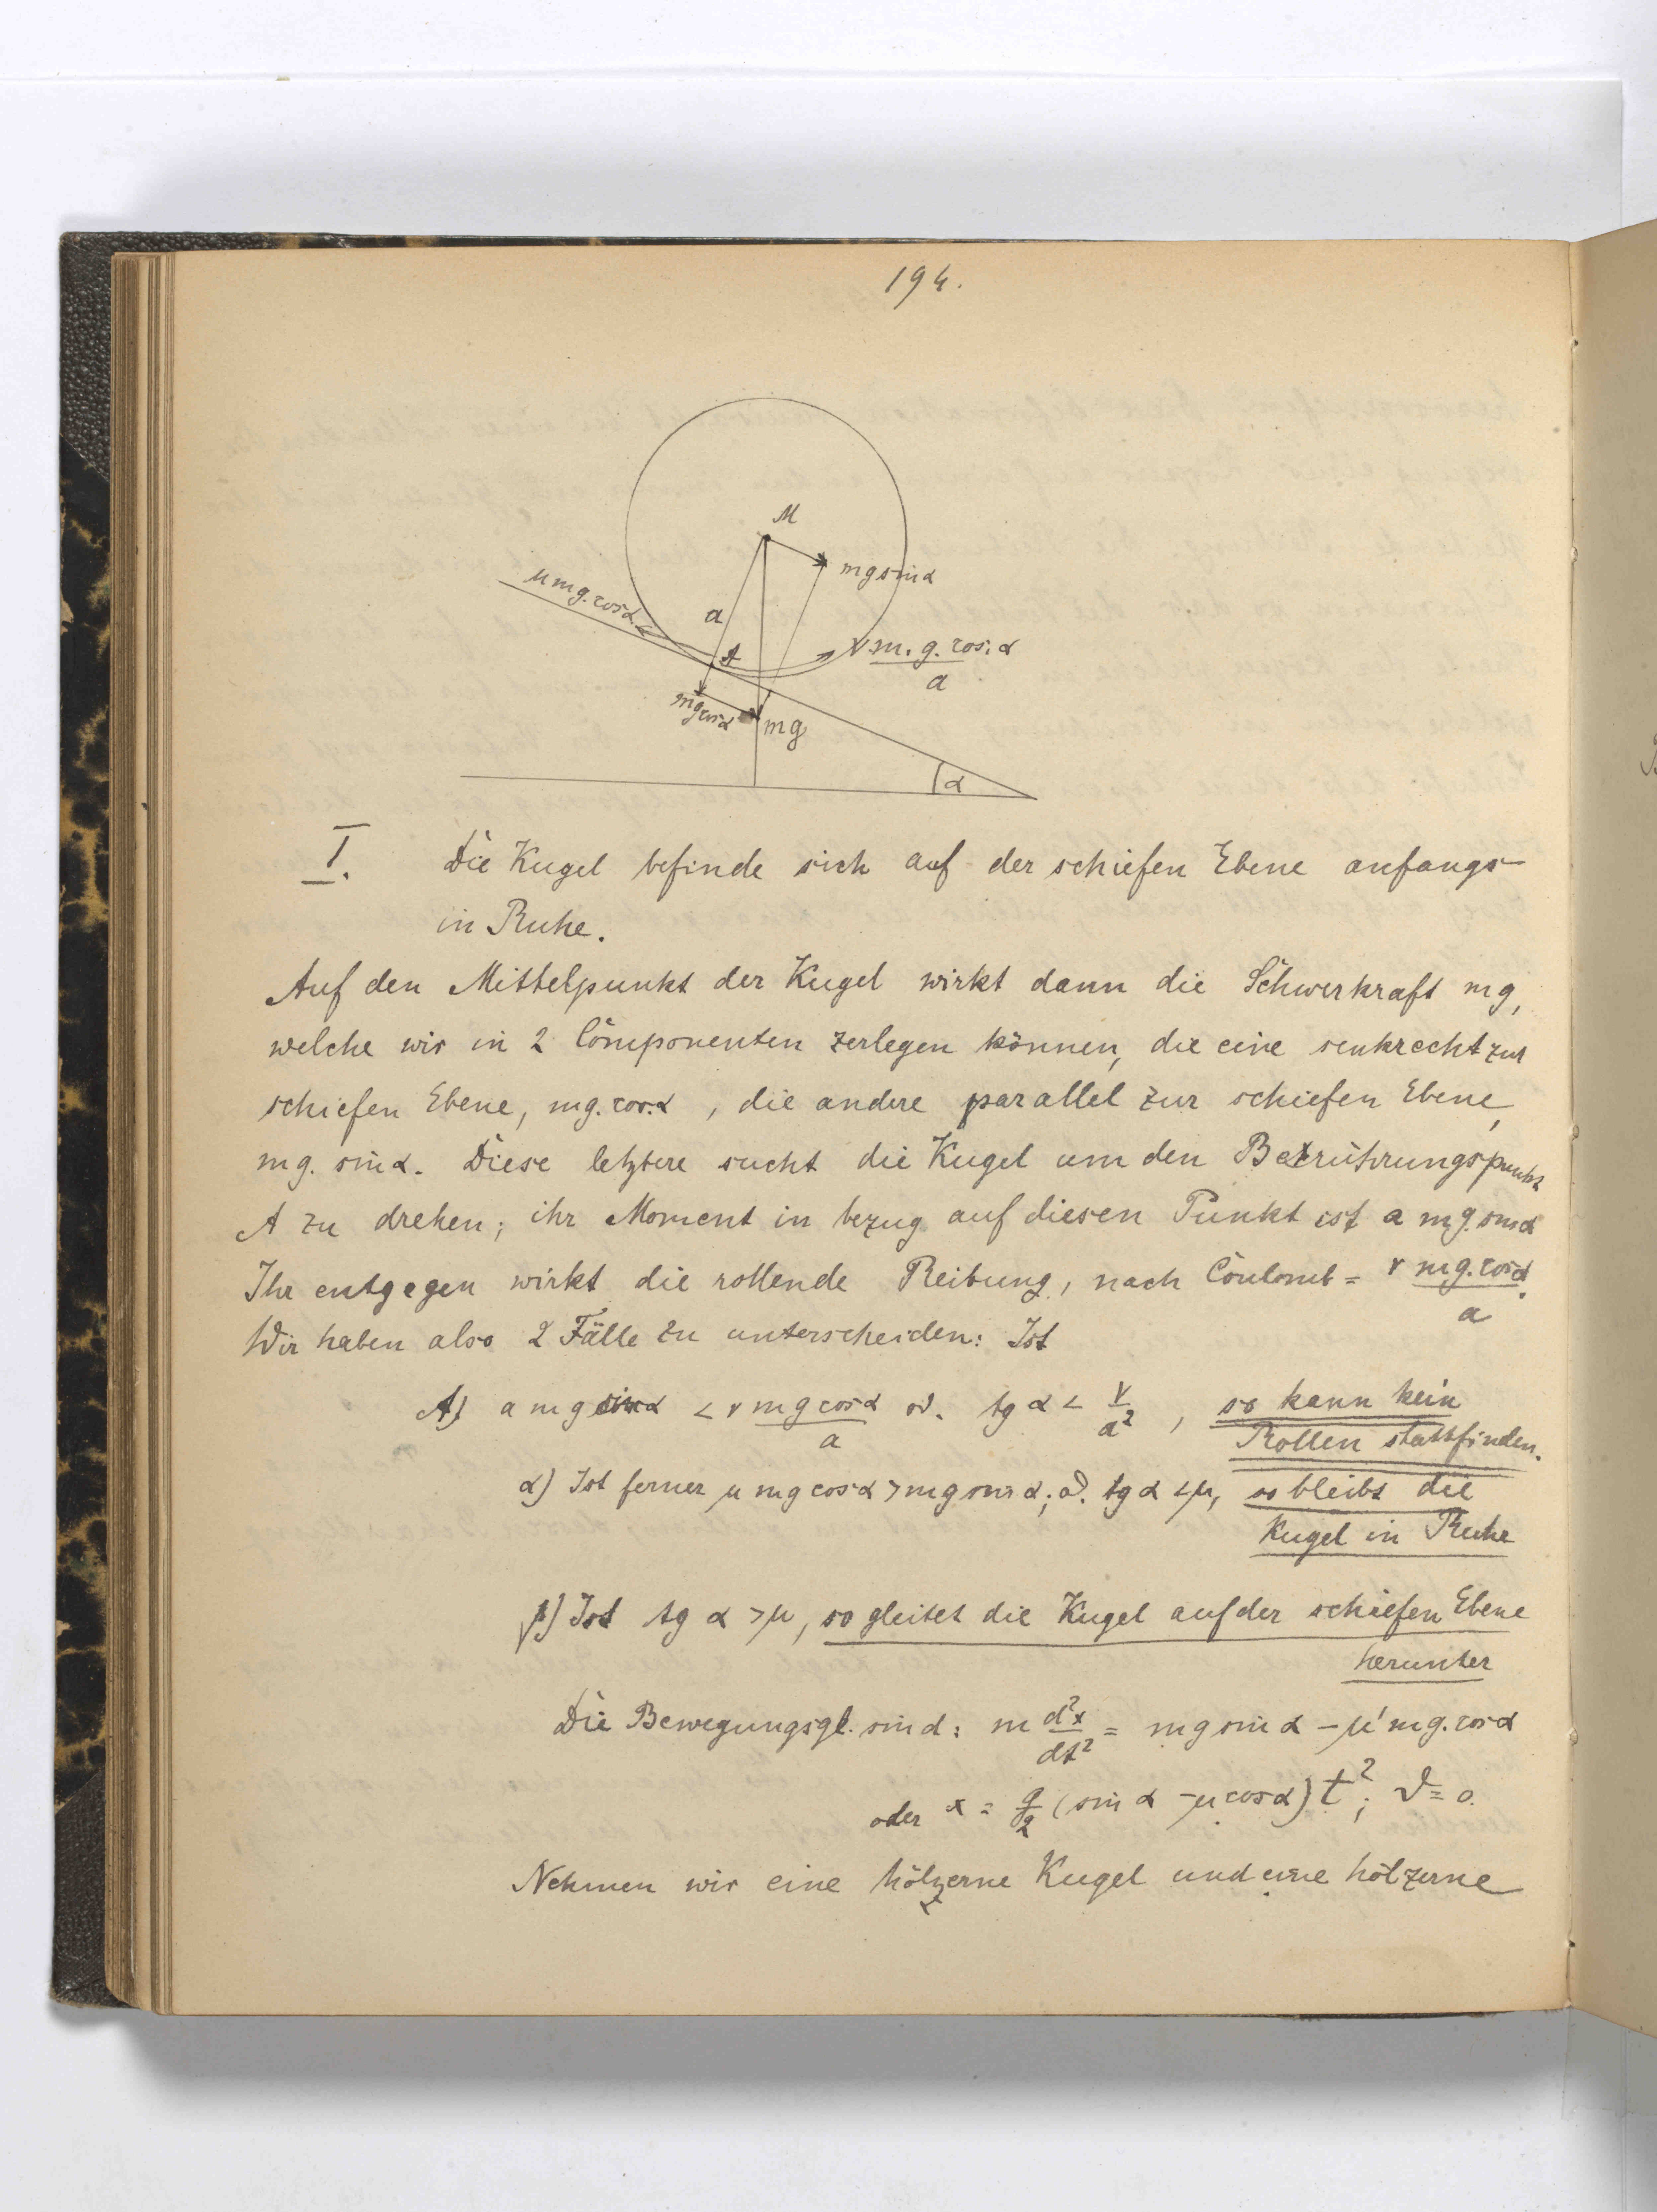 194.
M
mg sin α
μ mg. cos α.
a
A
ν. m. g. cos. α
a
mg cos α
mg
α
I. Die Kugel befinde sich auf der schiefen Ebene anfangs
in Ruhe.
Auf den Mittelpunkt der Kugel wirkt dann die Schwerkraft mg,
welche wir in 2 Componenten zerlegen können, die eine senkrecht zur
schiefen Ebene, mg. cos. α, die andere parallel zur schiefen Ebene,
mg. sin α. Diese letztere sucht die Kugel um den Berührungspunkt
A zu drehen; ihr Moment in bezug auf diesen Punkt ist a mg. sin α
Ihr entgegen wirkt die rollende Reibung, nach Coulomb = ν mg. cos α / a.
Wir haben also 2 Fälle zu unterscheiden: Ist
A) a mg sin α < ν mg cos α / a od. tg α < ν / a², so kann kein
Rollen stattfinden.
α) Ist ferner μ mg cos α > mg sin α; od. tg α < μ, so bleibt die
Kugel in Ruhe
β) Ist tg α > μ, so gleitet die Kugel auf der schiefen Ebene
herunter
Die Bewegungsgl. sind: m d²x / dt² = mg sin α - μ' mg. cos α
oder x = g/2 (sin α - μ cos α) t²; ϑ = 0.
Nehmen wir eine hölzerne Kugel und eine hölzerne